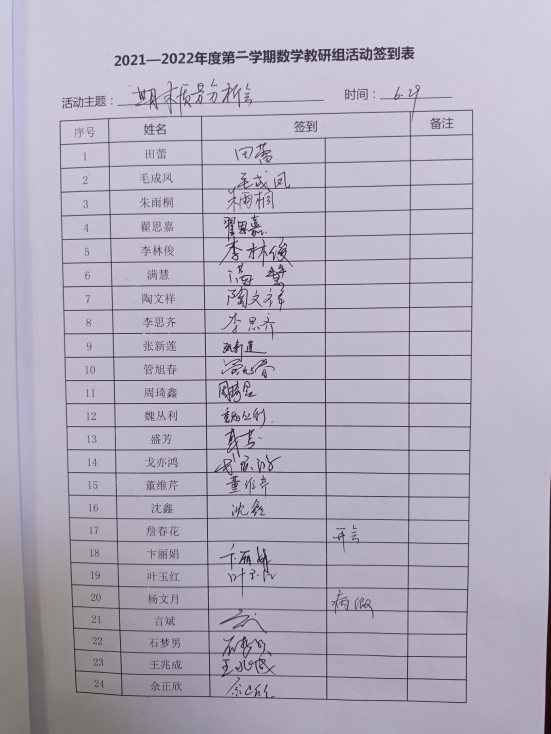 2021—2022年度第二学期数学教研组活动签到表
活动主题：期末质量分析会 时间：6.29
序号 姓名 签到 备注
1 田蕾 田蕾
2 毛成凤 毛成凤
3 朱雨桐 朱雨桐
4 翟思嘉 翟思嘉
5 李林俊 李林俊
6 满慧 满慧
7 陶文祥 陶文祥
8 李思齐 李思齐
9 张新莲 张新莲
10 管旭春 管旭春
11 周琦鑫 周琦鑫
12 魏丛利 魏丛利
13 盛芳 盛芳
14 戈亦鸿 戈亦鸿
15 董维芹 董维芹
16 沈鑫 沈鑫
17 詹春花 开会
18 卞丽娟 卞丽娟
19 叶玉红 叶玉红
20 杨文月 病假
21 言斌
22 石梦男 石梦男
23 王兆成 王兆成
24 佘正欣 佘正欣